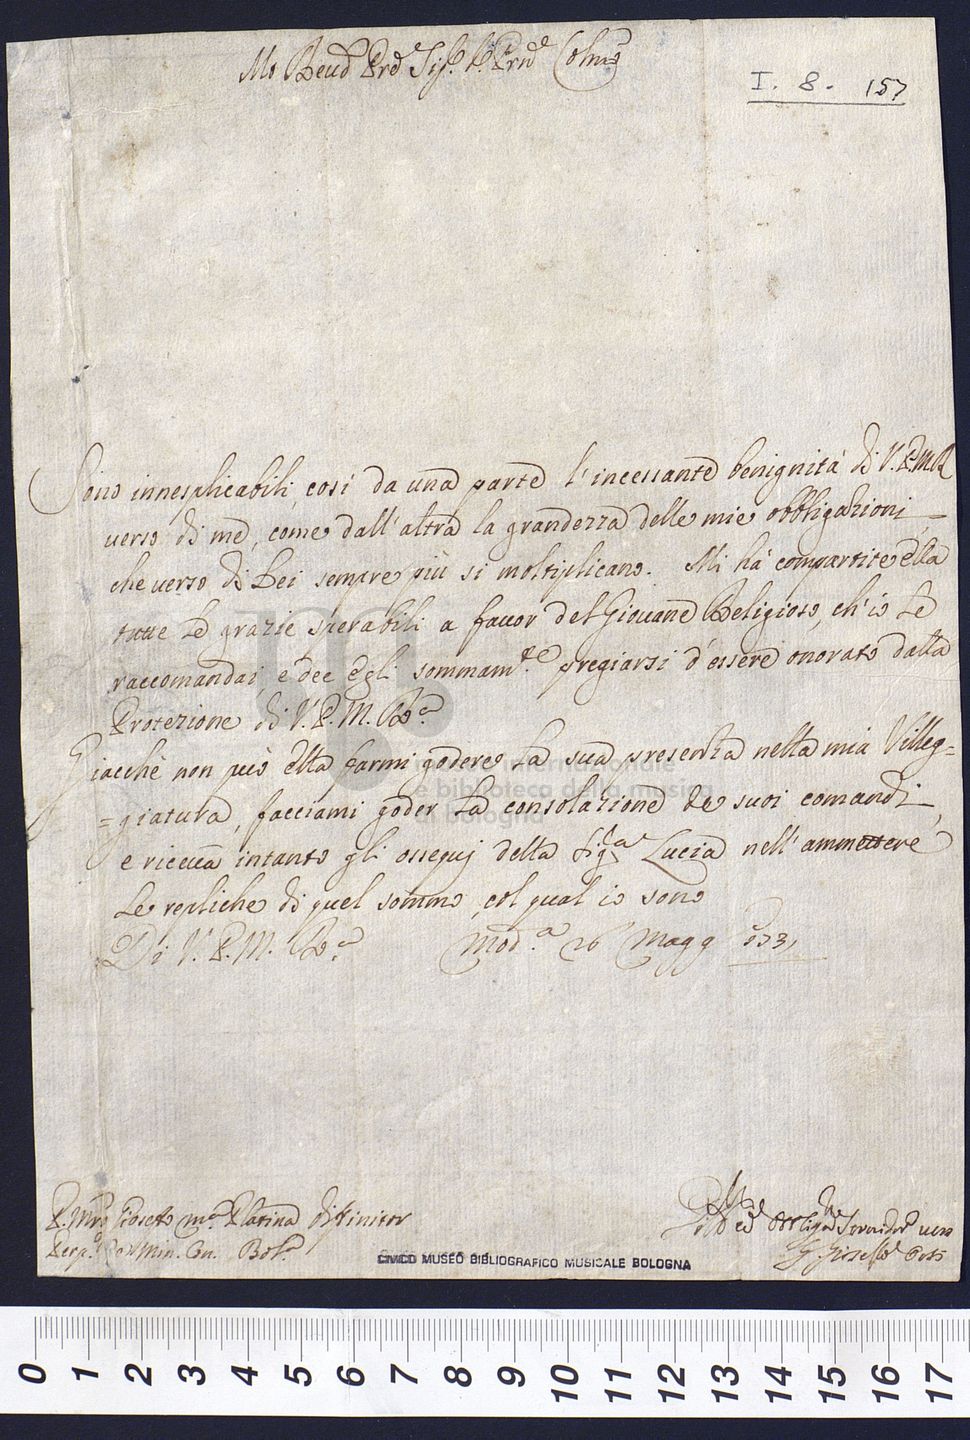 Mo Reud Prd Sigr Pr Prnd Colmo
I. 8. 157
Sono innesplicabili, così da una parte l'incessante benignità di V. P. M. R
verso di me, come dall'altra la grandezza delle mie obbligazioni,
che verso di Lei sempre più si moltiplicano. Mi hà compartite ella
tutte le grazie sperabili a favor del Giovane Religioso, ch'io Le
raccomandai, e dee egli sommamte pregiarsi d'essere onorato dalla
Protezione di V. P. M. Rda
Giacchè non può ella farmi godere la sua presenza nella mia Villeg=
=giatura, facciami goder la consolazione de suoi comandi,
e riceva intanto gli ossequj della Siga Lucia nell'ammettere
le repliche di quel sommo, col qual io sono
Di V. P. M. Rda Moda 26 Magg 1731
P. Mro Gioseffo Ma Platina Difinitor
Perpo Min. Con. Bola
Obligmo Servidor vero
G Gioseffo Orsi
museo internazionale
e biblioteca della musica
di bologna
CIVICO MUSEO BIBLIOGRAFICO MUSICALE BOLOGNA
0 1 2 3 4 5 6 7 8 9 10 11 12 13 14 15 16 17